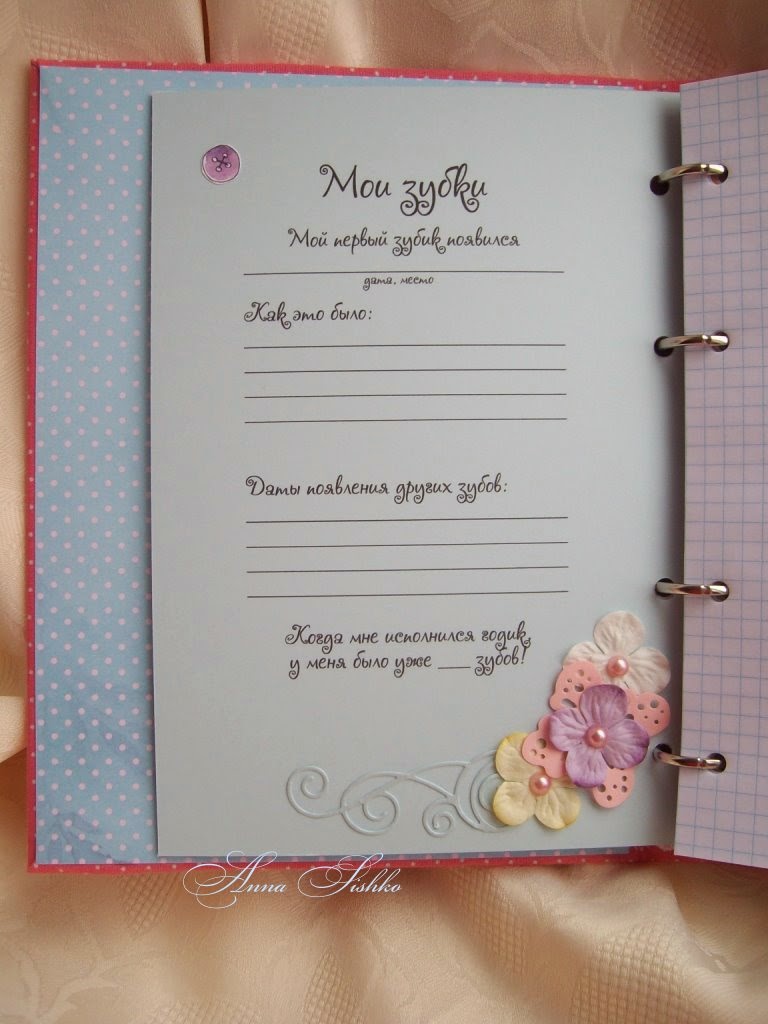 Мои зубки
Мой первый зубик появился
дата, место
Как это было:
Даты появления других зубов:
Когда мне исполнился годик,
у меня было уже ___ зубов!
Anna Sishko